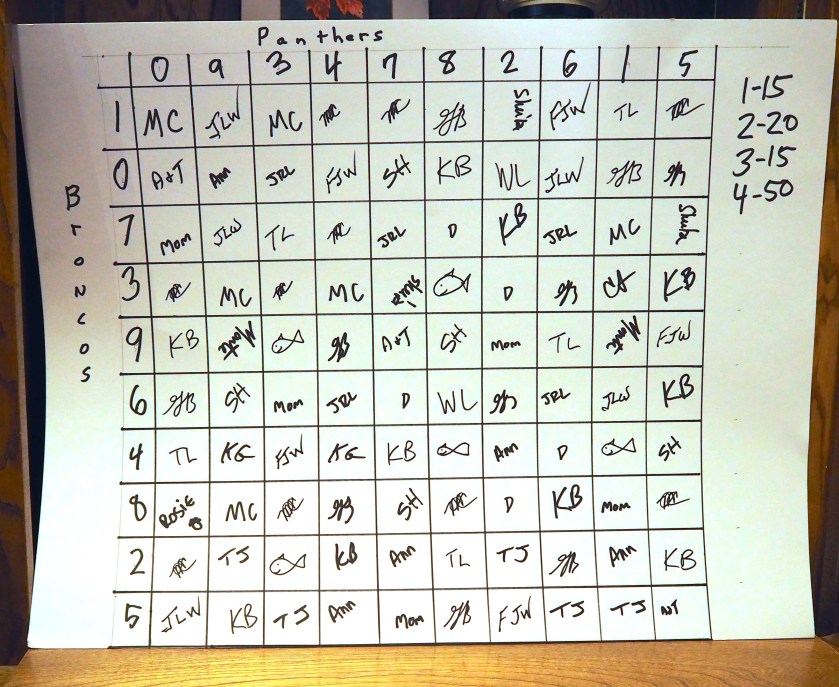 Panthers
0 9 3 4 7 8 2 6 1 5
1 MC JLW MC Shuba FJW TL
0 A+T Ann JRL FJW SH KB WL JLW
7 Mom JLW TL JRL D KB JRL MC Shuba
3 MC MC D KB
9 KB A+T SH Mom TL FJW
6 SH Mom JRL D WL JRL JLW KB
4 TL KG FJW KG KB Ann D SH
8 Rosie MC SH D KB Mom
2 TJ KB Ann TL TJ Ann KB
5 JLW KB TJ Ann Mom FJW TJ TJ NT
Broncos
1-15
2-20
3-15
4-50